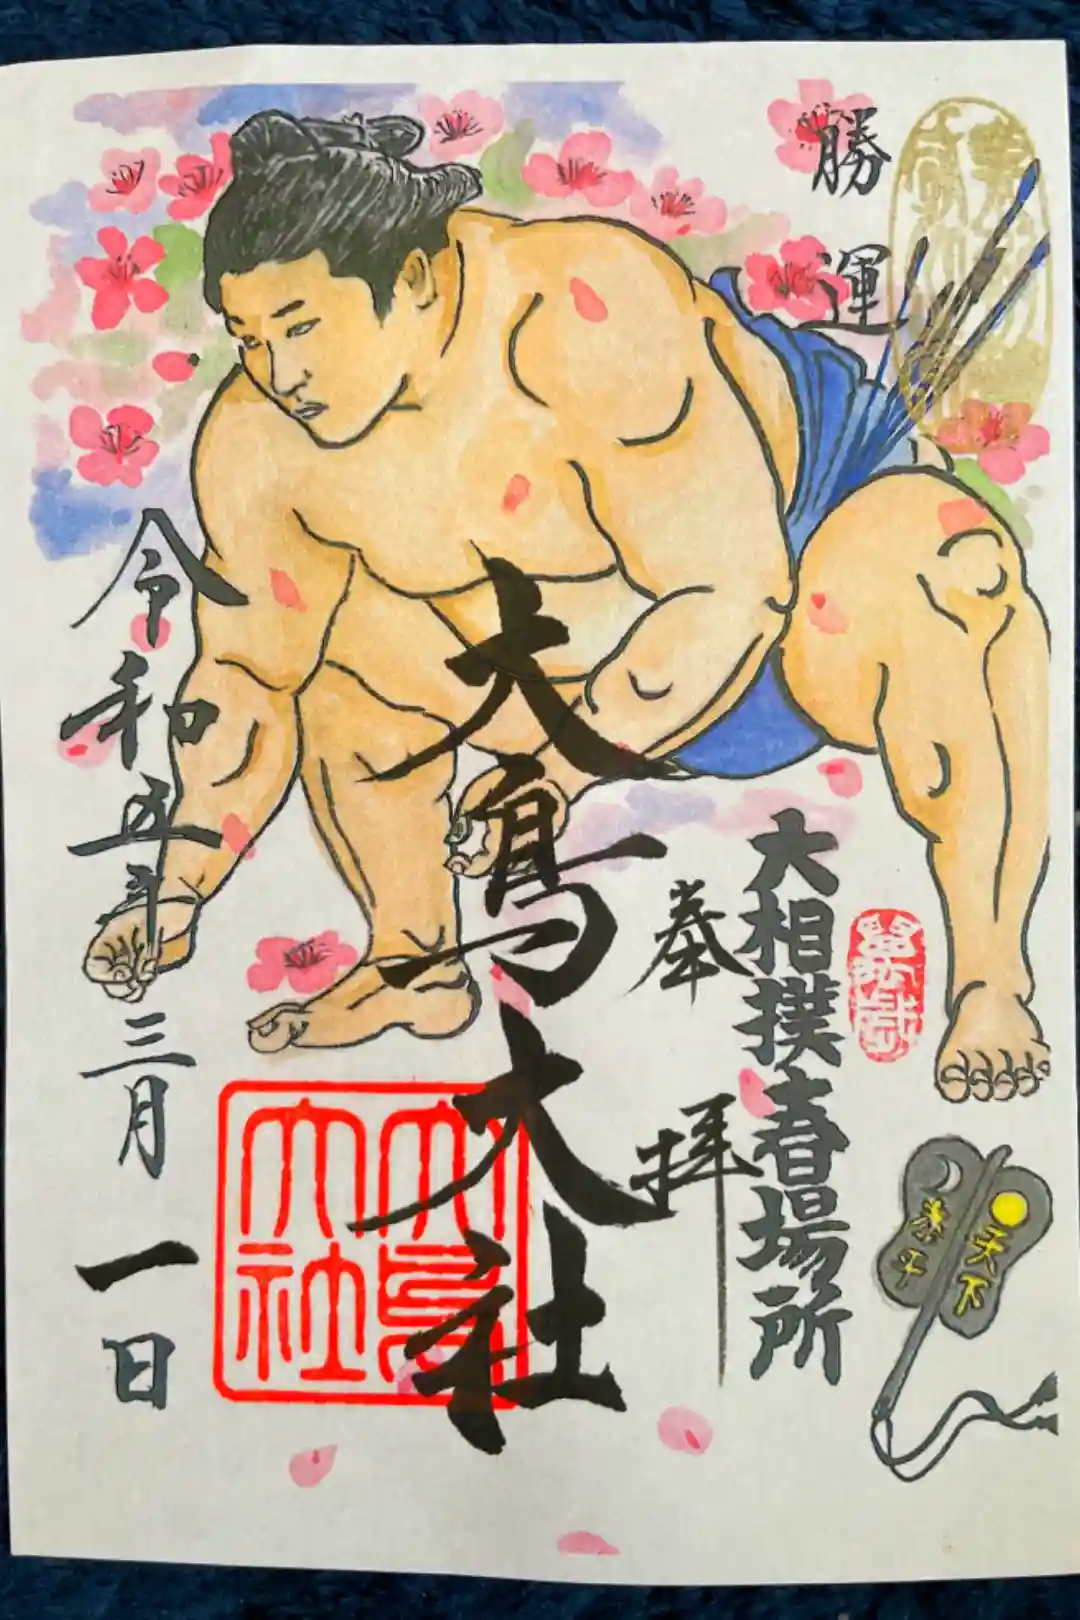 勝運
大相撲春場所
奉拝
大鳥大社
大鳥
大社
令和五年三月一日
天下
泰平